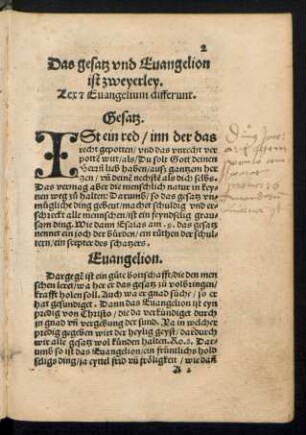 2
Das gesatz vnd Euangelion
ist zweyerley.
Lex ⁊ Euangelium differunt.
Gesatz.
IST ein red / inn der das
recht gepotten / vnd das vnrecht ver
pottē wirt / als / Du solt Gott deinen
Herrn lieb haben / auß gantzen her
tzen / vn̄ deinē nechstē als dich selbs.
Das vermag aber die menschlich natur in keyn
nen weg zu halten: Darumb / so das gesatz vn
müglichs ding gebeut / machet schuldig vnd er
schreckt alle mennschen / ist ein feyndselig grau
sam ding. Wie dann Esaias am .9. das gesatz
nennet ein joch der bürden / ein rüthen der schul
tern / ein scepter des schatzers.
Euangelion.
Dargegē ist ein gůte botschafft / die den men
schen leret / wa her er das gesatz zů volbringen /
krafft holen soll. Auch wa er gnad sůche / so er
hat gesündiget. Dann das Euangelion ist eyn
predig von Christo / die da verkündiget durch
jn gnad vn̄ vergebung der sund. Ja in welcher
predig gegeben wirt der heylig geyst / dardurch
wir alle gesatz wol künden halten. Ro.8. Dar
umb so ist das Euangelion / ein früntlichs hold
seligs ding / ja eyttel frid vn̄ frőligkeit / wie dañ
A 2